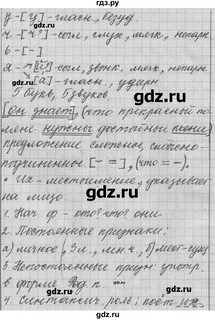 у - [у] - гласн., безуд.
ч - [ч'] - согл., глух., мягк., непарн.
ь - [-]
я - [й'] - согл., звонк., мягк., непарн.
[а] - гласн., ударн.
5 букв, 5 звуков.
[Он знает], (что прекрасной по
мене нужены достойные песни)
предложение сложное, сложно-
подчиненное. [- =], (что = -).
Их - местоимение, указывает
на лицо.
1. Нач. ф. - кто? что? они
2. Постоянные признаки:
а) личное, 3 л., мн. ч., б) мест.-сущ.
3. Непостоянные призн.: употр.
в форме Род. п.
4. Синтаксич. роль: поёт их.
gdz.ru
gdz.ru
gdz.ru
gdz.ru
gdz.ru
gdz.ru
gdz.ru
gdz.ru